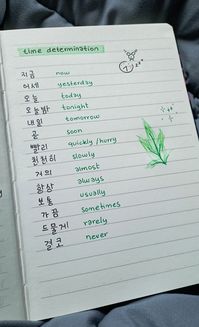 time determination
지금 now
어제 yesterday
오늘 today
오늘밤 tonight
내일 tomorrow
곧 soon
빨리 quickly /hurry
천천히 slowly
거의 almost
항상 always
보통 usually
가끔 sometimes
드물게 rarely
결코 never